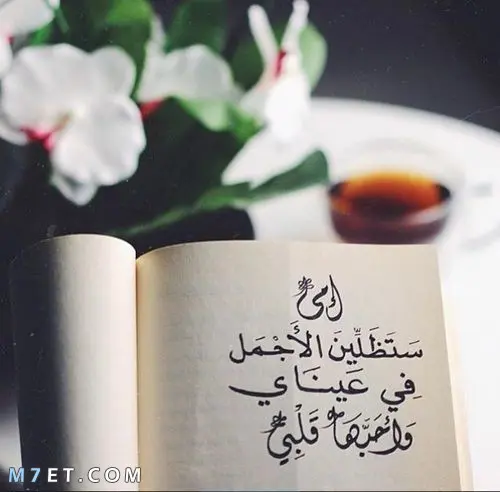 إمي
سَتَظَلِّينَ الأَجْمَل
فِي عَينَاي
وَأحَبَّهَا قَلْبِي
M7ET.COM